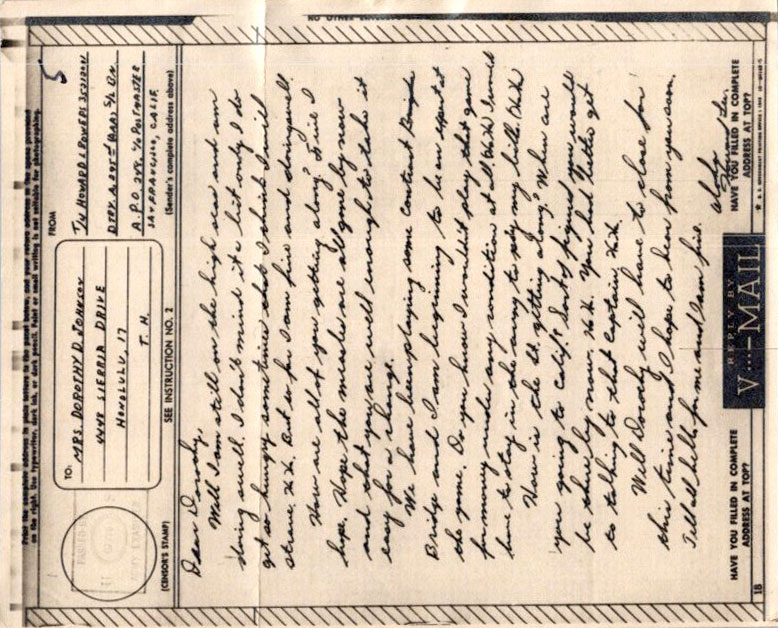 NO OTHER
Print the complete address in plain letters in the panel below, and your return address in the space provided
on the right. Use typewriter, dark ink, or dark pencil. Faint or small writing is not suitable for photographing.
5
FROM
TO:
MRS. DOROTHY D. JOHNSON
4448 SIERRIA DRIVE
HONOLULU, 17
T. H.
T/4 HOWARD L POWERS
BTRY A
A.P.O. 244 % POSTMASTER
SAN FRANCISCO, CALIF.
(CENSOR'S STAMP)
SEE INSTRUCTION NO. 2
(Sender's complete address above)
Dear Dorothy,
Well I am still on the high seas and am
doing swell. I don't mind it a bit only I do
get so hungry sometimes that I think I will
starve, Ha Ha. But so far I am fine and doing well.
How are all of you getting along? Fine I
hope. Hope the measles are all gone by now
and that you are well enough to take it
easy for a change.
We have been playing some Contract
Bridge and I am beginning to be an expert at
the game. Do you know I wouldn't play that game
for money under any condition at all Ha Ha I would
have to stay in the army to pay my bills. Ha Ha
How is the Lt. getting along? When are
you going to Calif? Sort of figured you would
be there by now. Ha Ha. You had better get
to talking to that Captain Ha Ha.
Well Dorothy will have to close for
this time and I hope to hear from you soon.
Tell all hello for me and I am fine.
Aloha
HAVE YOU FILLED IN COMPLETE
ADDRESS AT TOP?
REPLY BY
V···—MAIL
HAVE YOU FILLED IN COMPLETE
ADDRESS AT TOP?
18